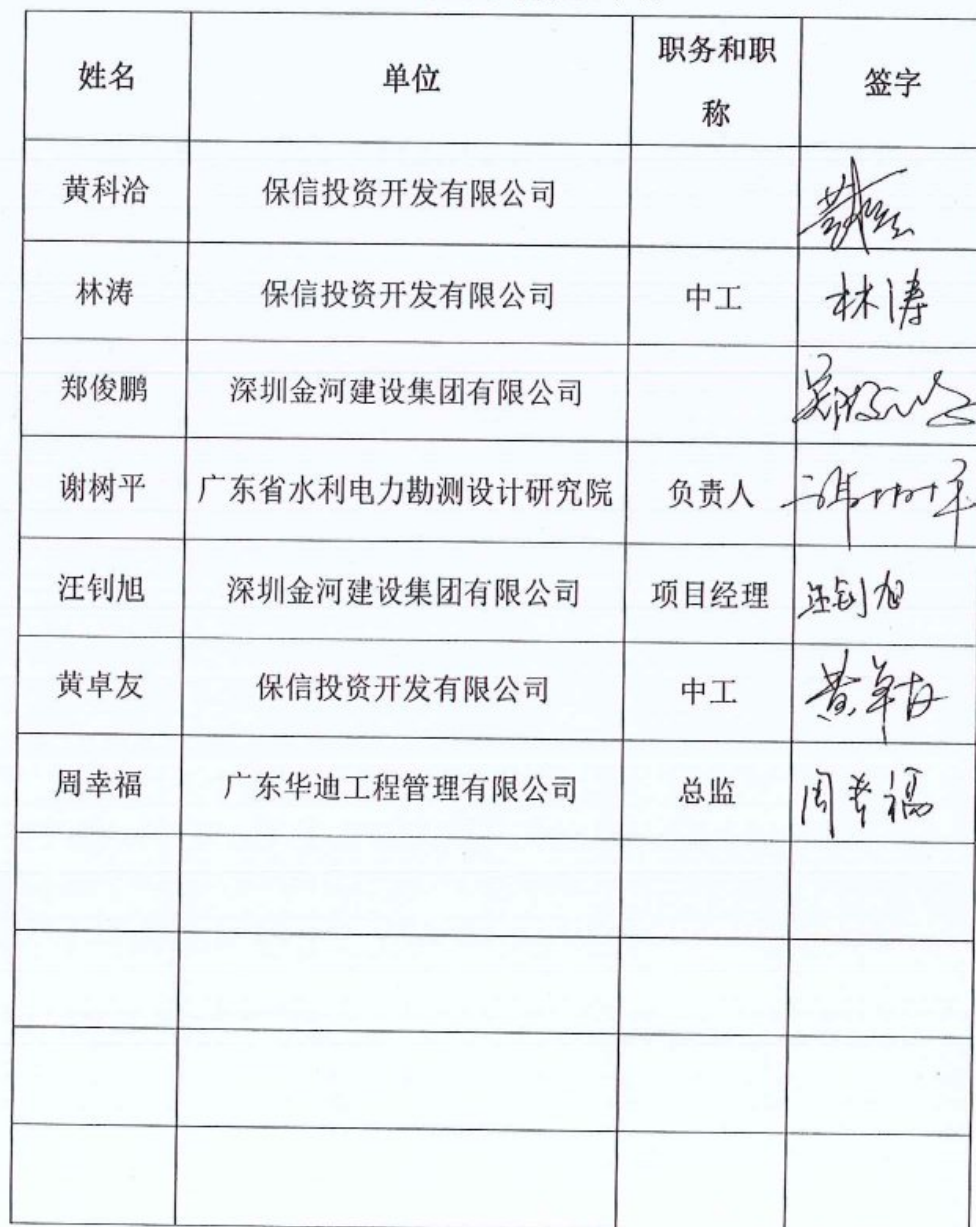 姓名 单位 职务和职称 签字
黄科洽 保信投资开发有限公司
林涛 保信投资开发有限公司 中工 林涛
郑俊鹏 深圳金河建设集团有限公司
谢树平 广东省水利电力勘测设计研究院 负责人
汪钊旭 深圳金河建设集团有限公司 项目经理 汪钊旭
黄卓友 保信投资开发有限公司 中工 黄卓友
周幸福 广东华迪工程管理有限公司 总监 周幸福